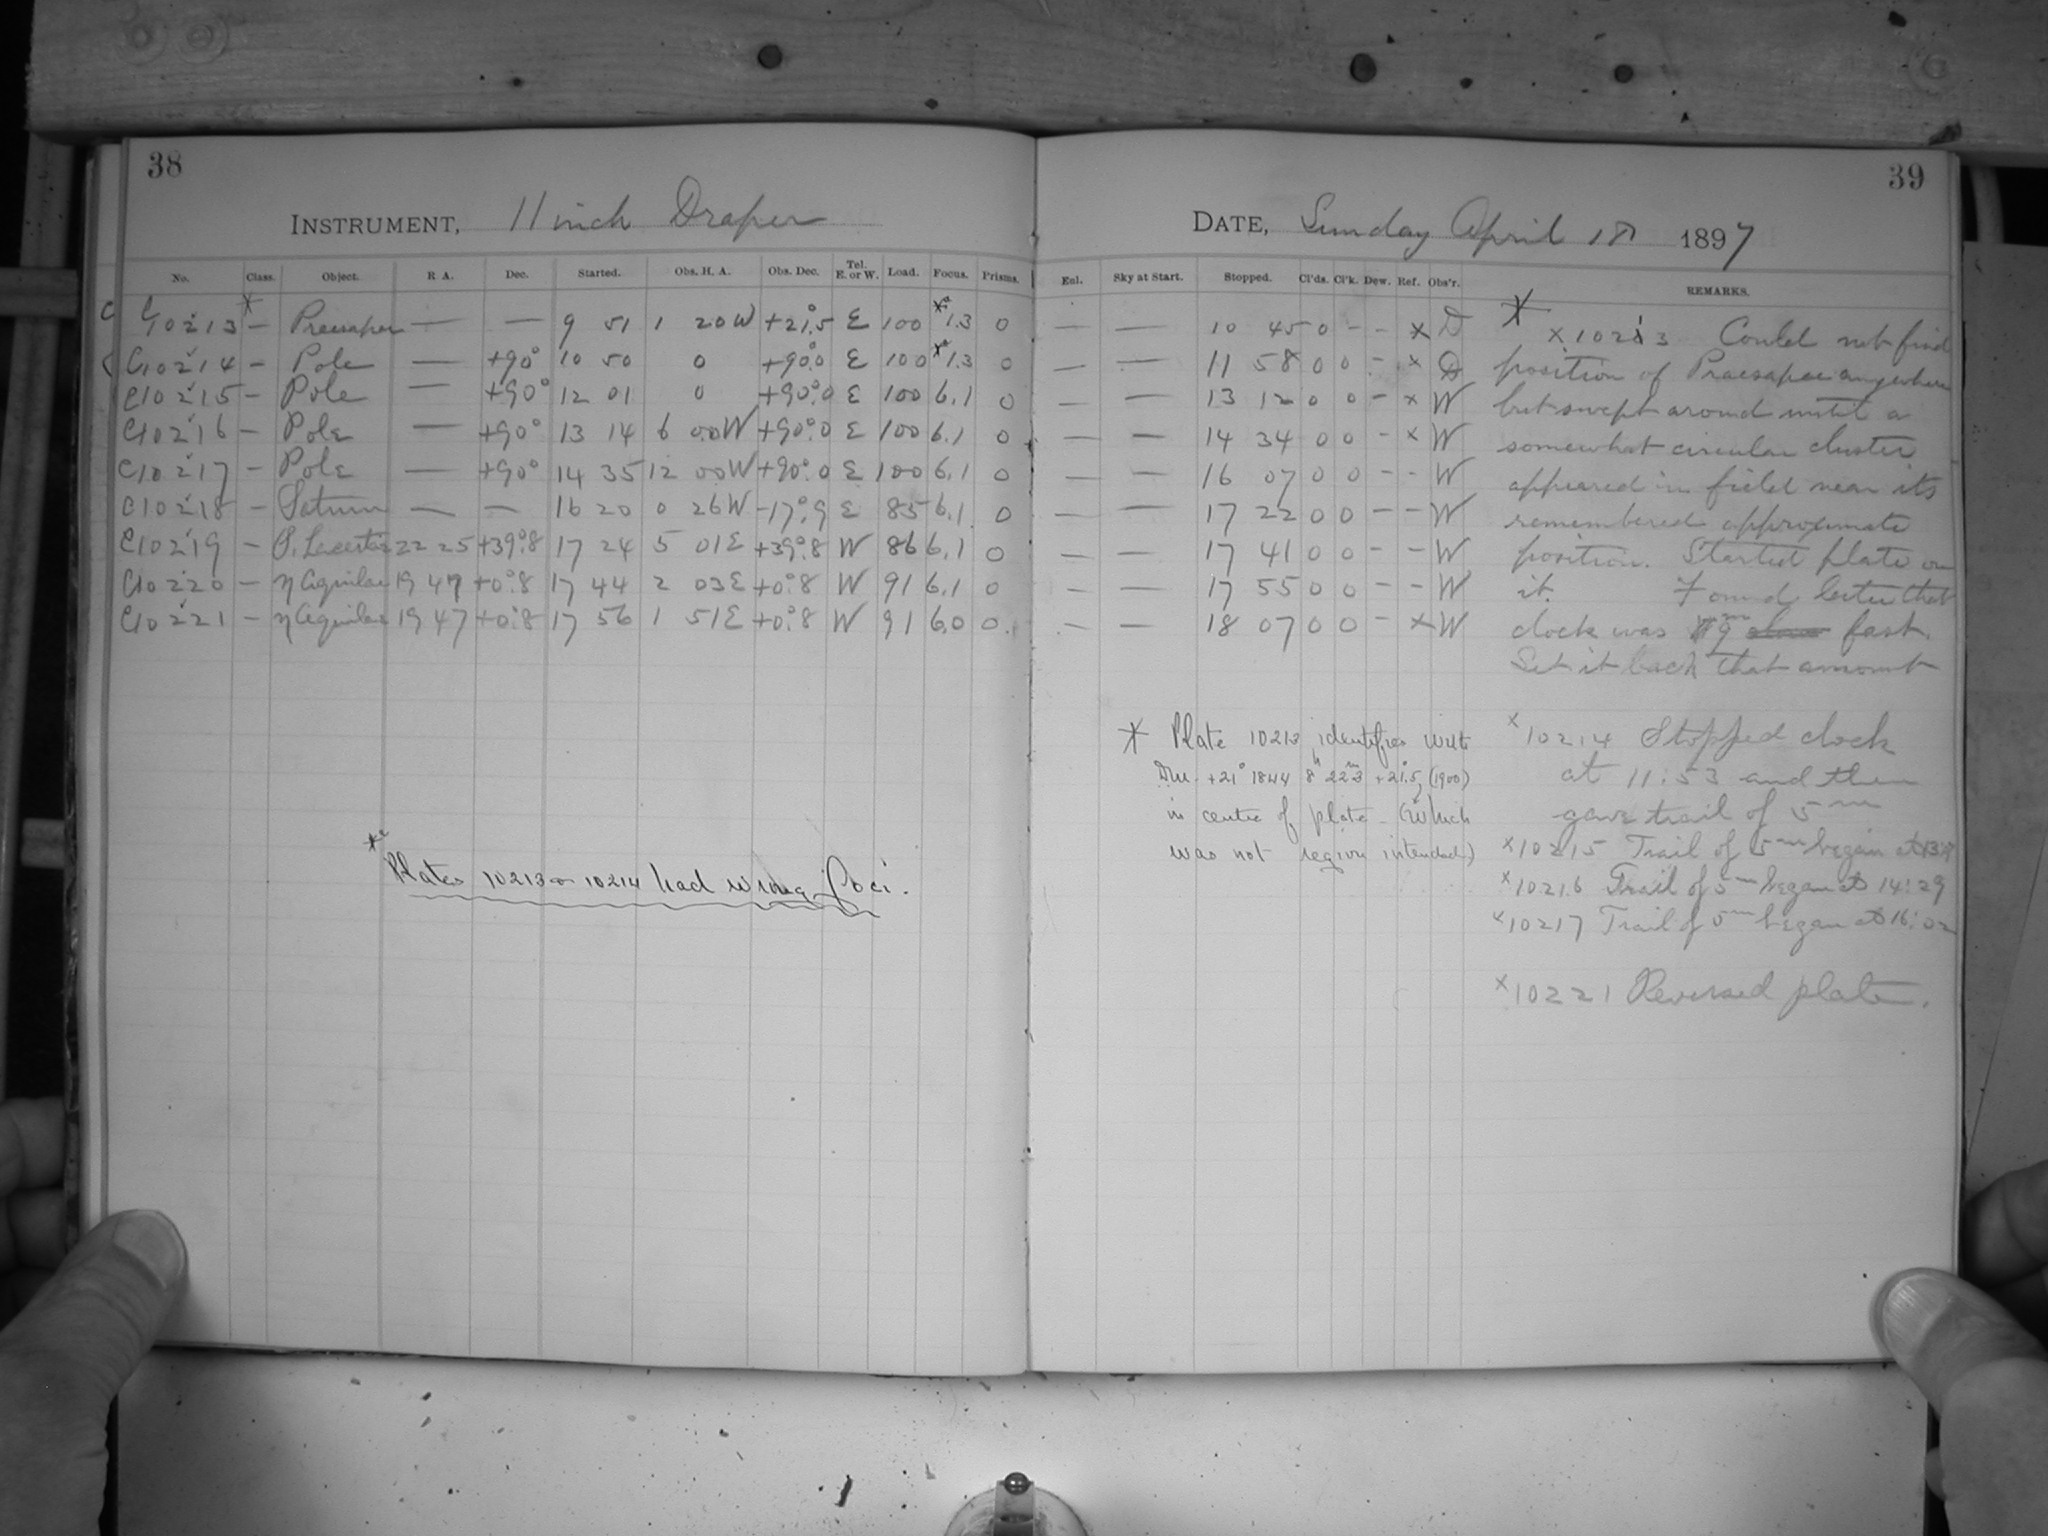 38
INSTRUMENT, 11 inch Draper
No. Class. Object. R A. Dec. Started. Obs. H. A. Obs. Dec. Tel. E. or W. Load. Focus. Prisms.
C10213 * — Praesape — — 9 51 1 20W +21°.5 E 100 *a 1.3 0
C10214 — Pole — +90° 10 50 0 +90°.0 E 100 *a 1.3 0
C10215 — Pole — +90° 12 01 0 +90°.0 E 100 6.1 0
C10216 — Pole — +90° 13 14 6 00W +90°.0 E 100 6.1 0
C10217 — Pole — +90° 14 35 12 00W +90°.0 E 100 6.1 0
C10218 — Saturn — — 16 20 0 26W -17°.9 E 85 6.1 0
C10219 — Lacertae 22 25 +39°.8 17 24 5 01E +39°.8 W 86 6.1 0
C10220 — η Aquilae 19 47 +0°.8 17 44 2 03E +0°.8 W 91 6.1 0
C10221 — η Aquilae 19 47 +0°.8 17 56 1 51E +0°.8 W 91 6.0 0
*a
Plates 10213 & 10214 had wrong foci.
39
DATE, Sunday April 18 1897
Enl. Sky at Start. Stopped. Cl'ds. Cl'k. Dew. Ref. Obs'r. REMARKS.
— — 10 45 0 - - x D
— — 11 58 0 0 - x D
— — 13 12 0 0 - x W
— — 14 34 0 0 - x W
— — 16 07 0 0 - - W
— — 17 22 0 0 - - W
— — 17 41 0 0 - - W
— — 17 55 0 0 - - W
— — 18 07 0 0 - x W
* Plate 10213 identifies with
Dm. +21° 1844 8h 22m3 +21°.5 (1900)
in centre of plate - (Which
was not region intended)
*
x 10213 Could not find
position of Praesapae anywhere
but swept around until a
somewhat circular cluster
appeared in field near its
remembered approximate
position. Started plate on
it. Found later that
clock was 9m slow fast.
Set it back that amount
x 10214 Stopped clock
at 11:53 and then
gave trail of 5m
x 10215 Trail of 5m began at
x 10216 Trail of 5m began at 14:29
x 10217 Trail of 5m began at 16:02
x 10221 Reversed plate.